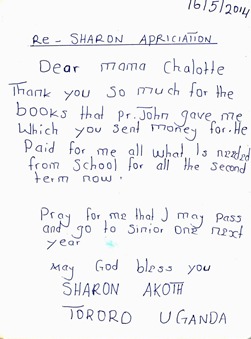 16/5/2014
Re - SHARON APRICIATION
Dear mama Chalotte
Thank you so much for the
books that pr. John gave me
Which you sent money for. He
Paid for me all what Is needed
from School for all the second
term now.
Pray for me that I may pass
and go to Sinior one next
year
may God bless you
SHARON AKOTH
TORORO UGANDA